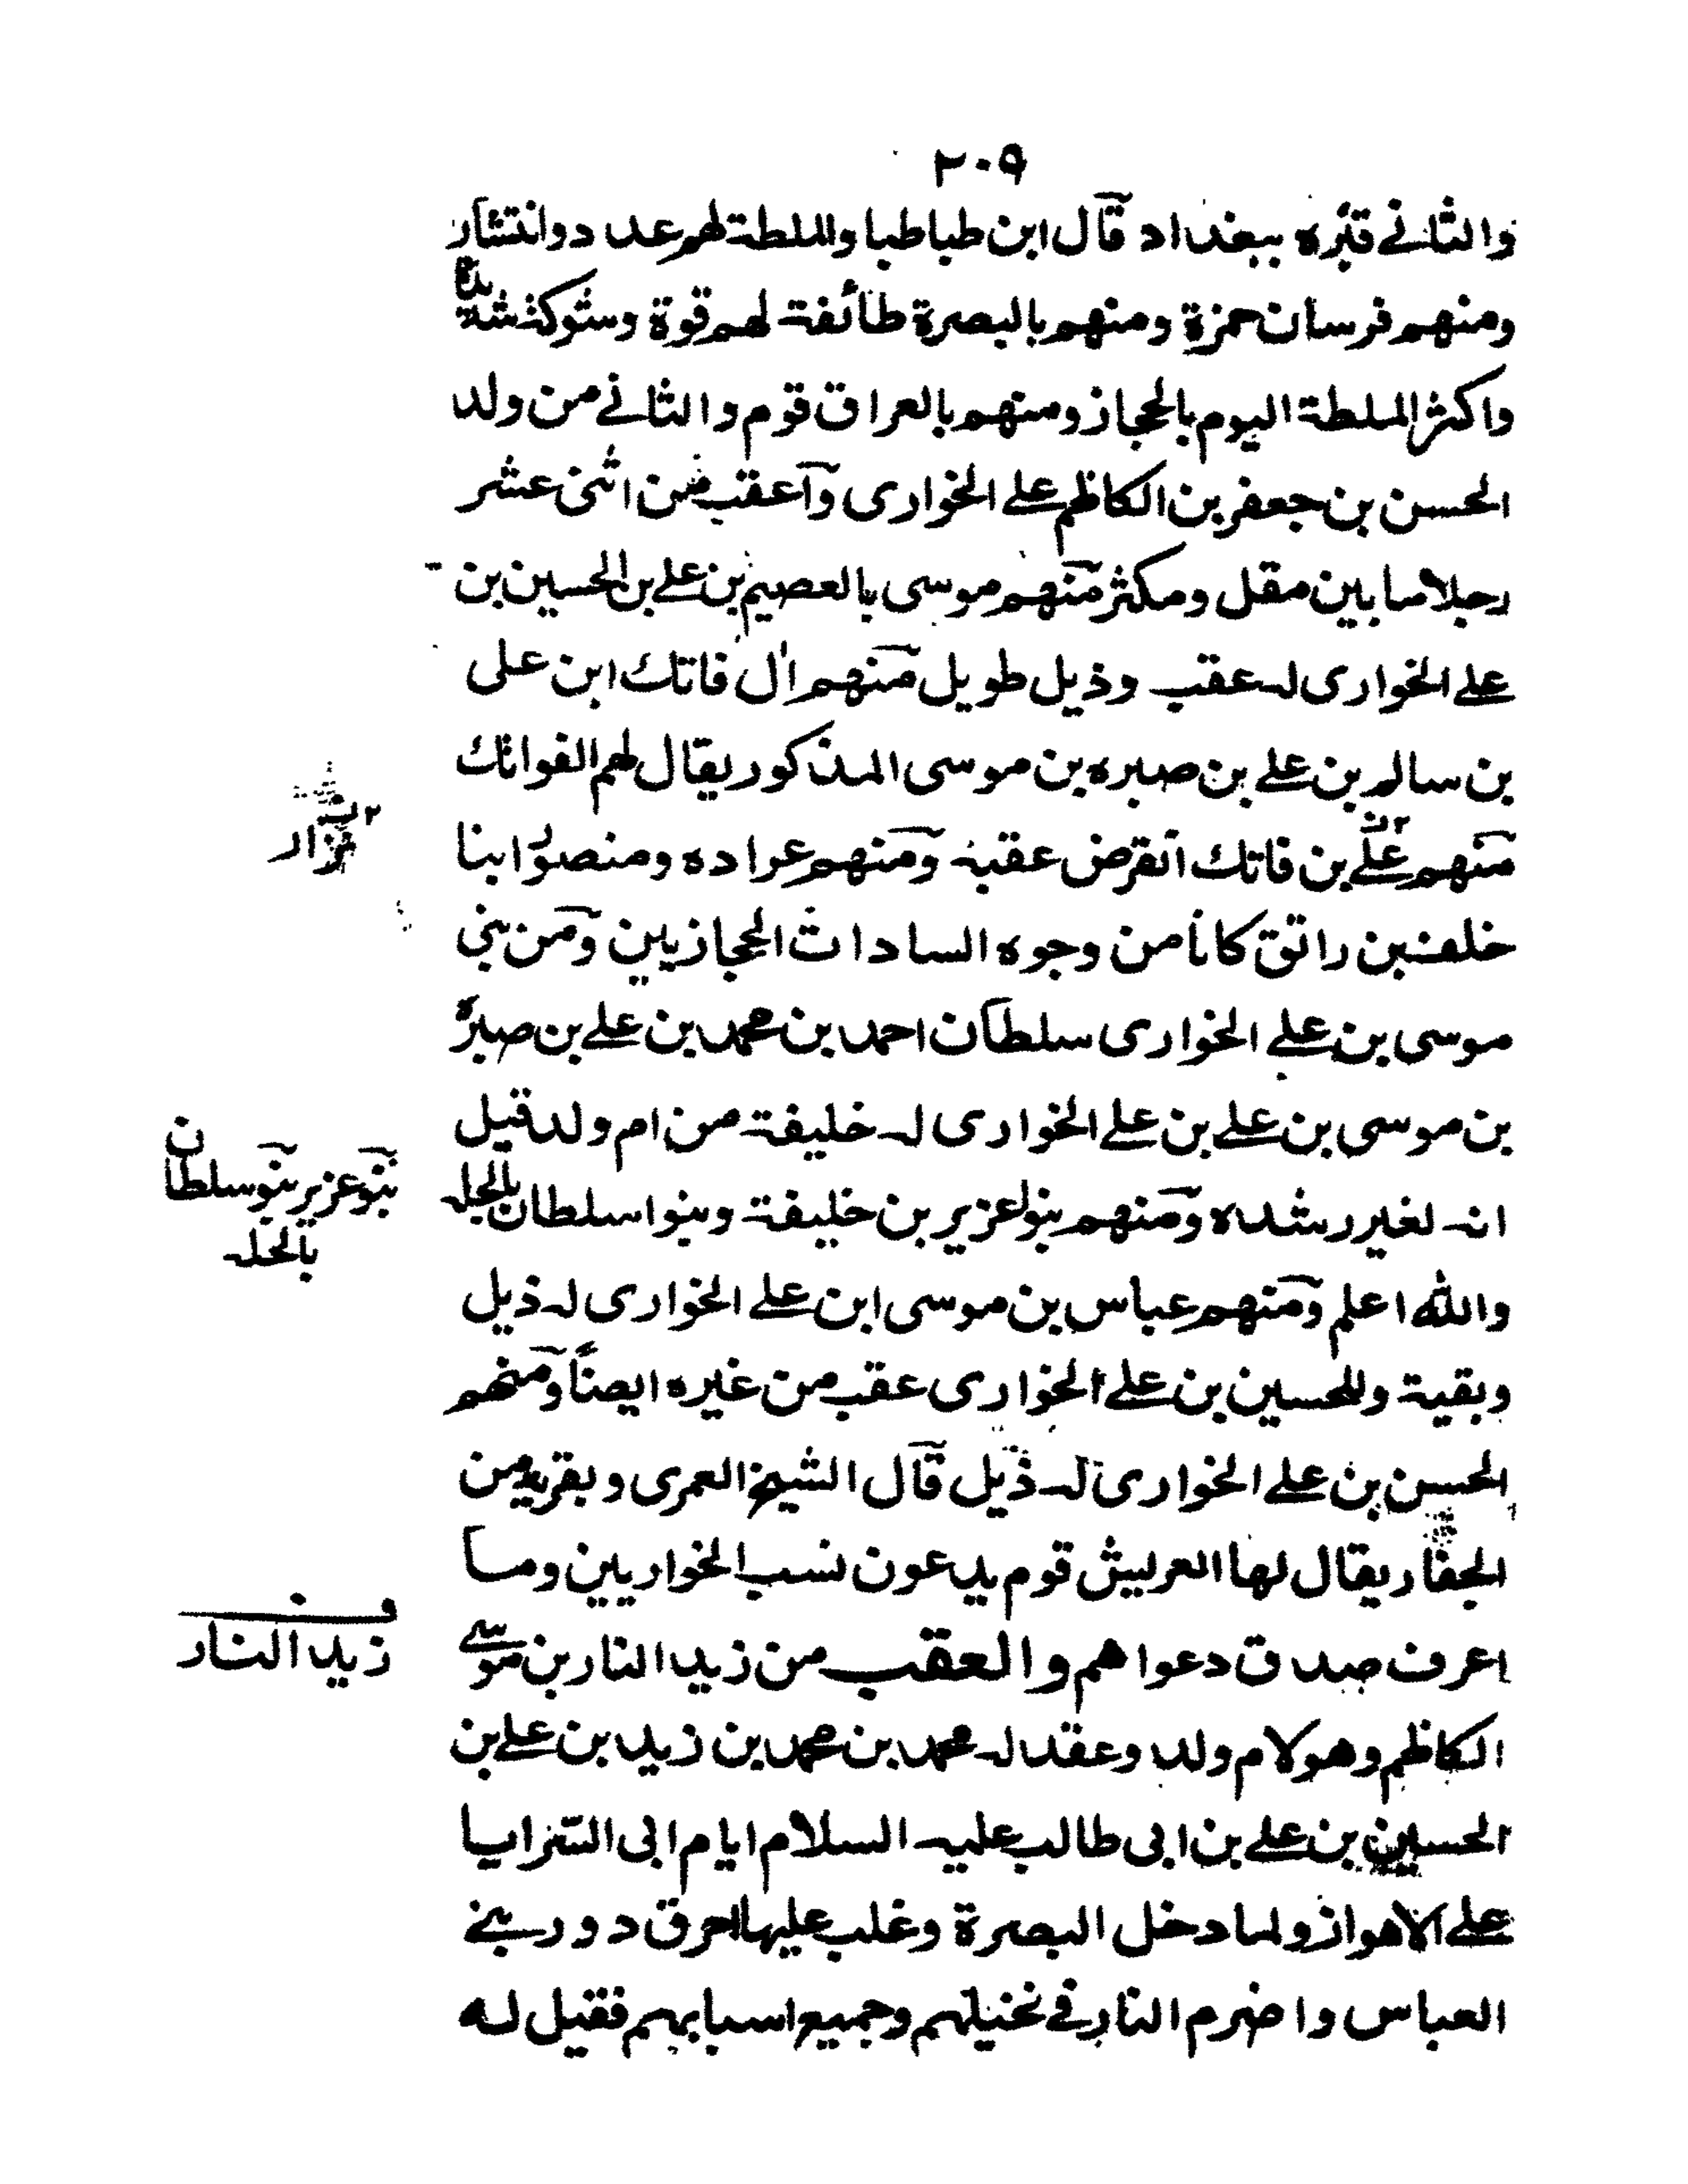 ٢٠٩
والثانے قبره ببغداد قآل ابن طباطبا والملطة لهم عدد وانتشار
ومنهم فرسان حمزة ومنهم بالبصرة طائفة لهم قوة وشوكة شديدة
واكثر الملطة اليوم بالحجاز ومنهم بالعراق قوم والثانے من ولد
الحسن بن جعفر بن الكاظم علے الخوارى وآعقب من اثنى عشر
رجلا ما بين مقل ومكثر منهم موسى بالعصيم بن علے بن الحسين بن
علے الخوارى له عقب وذيل طويل منهم اٰل فاتك ابن على
بن سالم بن علے بن صبره بن موسى المذكور يقال لهم الفواتك
منهم علے بن فاتك انقرض عقبه ومنهم عراده ومنصور ابنا
خلف بن راتق كانا من وجوه السادات الحجازيين ومن بني
موسى بن علے الخوارى سلطان احمد بن محمد بن علے بن صبرة
بن موسى بن علے بن علے الخوارى له خليفة من ام ولد قيل
انه لغير رشده ومنهم بنو عزير بن خليفة وبنوا سلطان بالحله
والله اعلم ومنهم عباس بن موسى ابن علے الخوارى له ذيل
وبقية وللحسين بن علے الخوارى عقب من غيره ايضاً ومنهم
الحسن بن علے الخوارى له ذيل قآل الشيخ العمرى وبقرية من
الجفار يقال لها العريش قوم يدعون نسب الخواريين وما
اعرف صدق دعواهم والعقب من زيد النار بن موسے
الكاظم وهو لام ولد وعقد له محمد بن محمد بن زيد بن علے بن
الحسين بن علے بن ابى طالب عليه السلام ايام ابى السرايا
علے الاهواز ولما دخل البصرة وغلب عليها احرق دور بنے
العباس واضرم النار فے نخيلهم وجميع اسبابهم فقيل له
٢ ن
نزار
بنو عزير بنو سلطان
بالحله
زيد النار